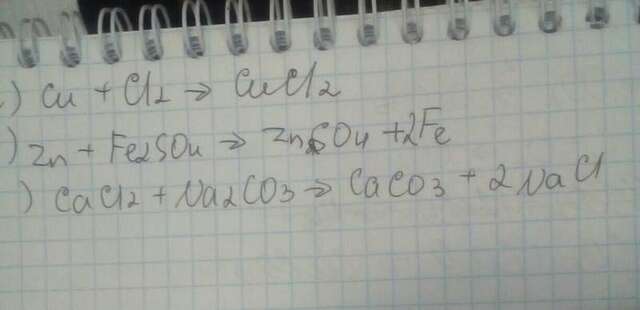 .) Cu + Cl2 → CuCl2
) Zn + Fe2SO4 → ZnSO4 + 2Fe
) CaCl2 + Na2CO3 → CaCO3 + 2NaCl